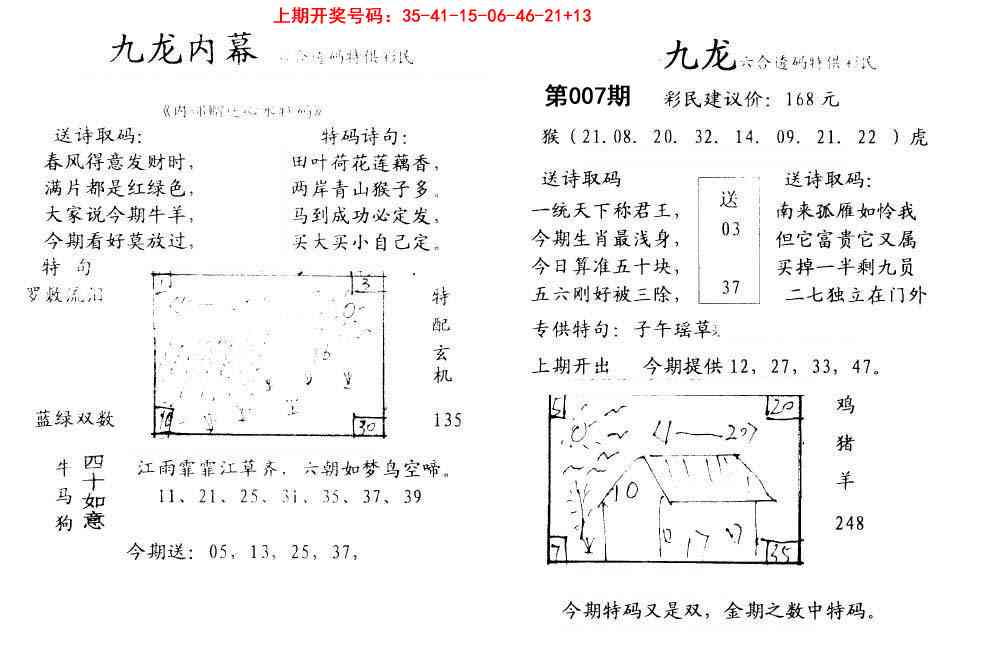 上期开奖号码：35-41-15-06-46-21+13
九龙内幕
合透码特供彩民
送诗取码：
春风得意发财时，
满片都是红绿色，
大家说今期牛羊，
今期看好莫放过，
特码诗句：
田叶荷花莲藕香，
两岸青山猴子多。
马到成功必定发，
买大买小自己定。
特 句
1
3
10
30
特配玄机
135
蓝绿双数
牛
马
狗
四十如意
江雨霏霏江草齐．六朝如梦鸟空啼。
11、21、25、31、35、37、39
今期送：05，13，25，37，
九龙六合透码特供彩民
第007期 彩民建议价：168元
猴（21.08. 20. 32. 14. 09. 21. 22 ）虎
送诗取码
一统天下称君王，
今期生肖最浅身，
今日算准五十块，
五六刚好被三除，
送
03
37
送诗取码：
南来孤雁如怜我
但它富贵它又属
买掉一半剩九员
二七独立在门外
专供特句：子午瑶草
上期开出 今期提供12，27，33，47。
5
20
10
17
7
35
鸡
猪
羊
248
今期特码又是双，金期之数中特码。